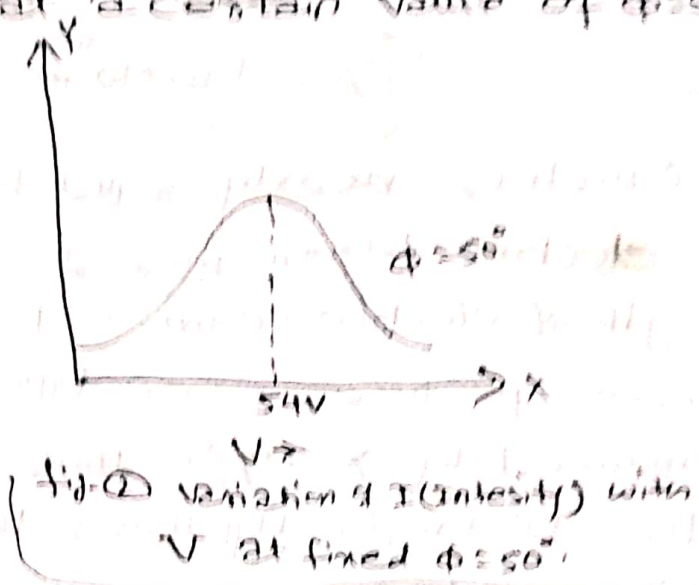 at a certain value of
Y
ϕ = 50°
54V
X
V →
fig-② Variation of I (Intesity) with
V at fixed ϕ = 50°.